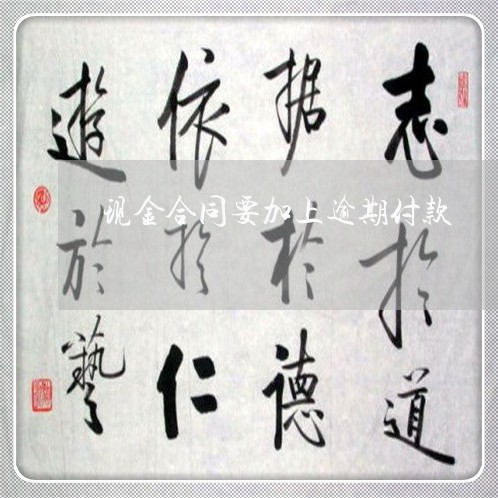 志於道
据於德
依於仁
遊於藝
现金合同要加上逾期付款